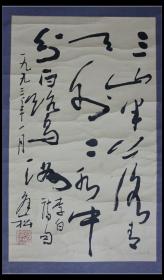 三山半落青
天外二水中
分白鹭洲 李白诗句
一九九三年一月 松